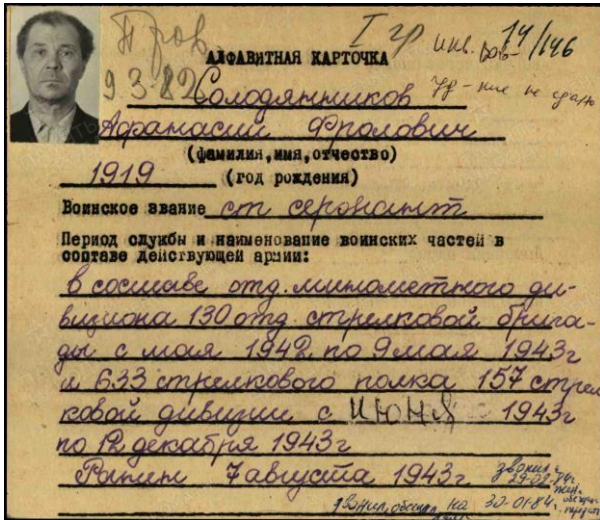 Пров
I гр инв. вов- 14/146
АЛФАВИТНАЯ КАРТОЧКА
9.3.82
Солодянников уд-ние не сдано
Афанасий Фролович
(фамилия,имя,отчество)
1919 (год рождения)
Воинское звание ст сержант
Период службы и наименование воинских частей в
составе действующей армии:
в составе отд. минометного ди-
визиона 130 отд. стрелковой брига-
ды с мая 1942 по 9 мая 1943г
и 633 стрелкового полка 157 стрел
ковой дивизии с ИЮНЯ 1943г
по 12 декабря 1943г
Ранен 7 августа 1943г
звонил на 30-01-84г.